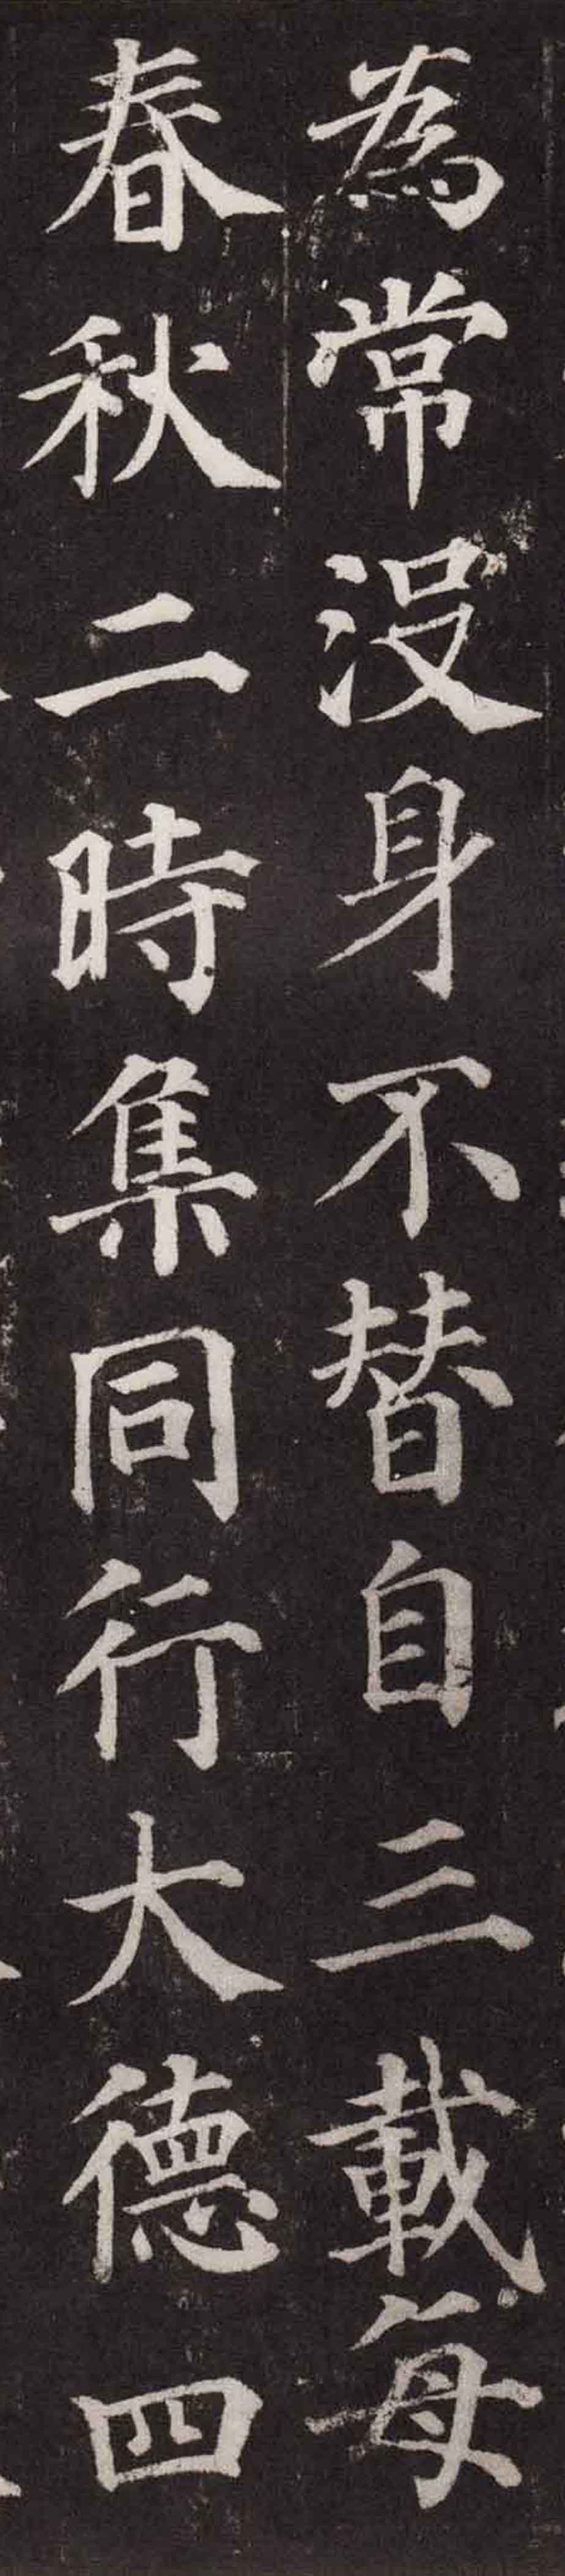 為常没身不替自三載每
春秋二時集同行大德四